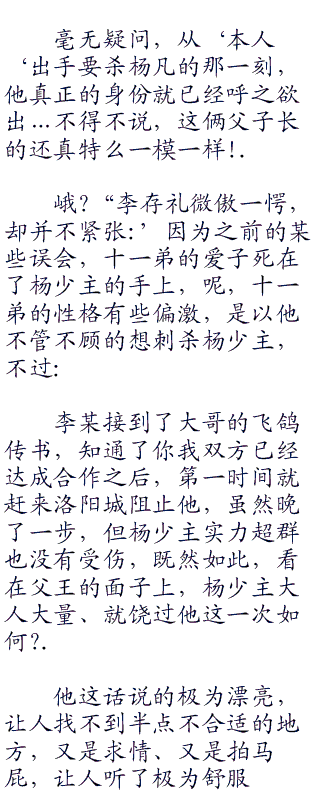 毫无疑问，从‘本人
‘出手要杀杨凡的那一刻，
他真正的身份就已经呼之欲
出...不得不说，这俩父子长
的还真特么一模一样!.
峨?“李存礼微傲一愕，
却并不紧张:’因为之前的某
些误会，十一弟的爱子死在
了杨少主的手上，呢，十一
弟的性格有些偏激，是以他
不管不顾的想刺杀杨少主，
不过:
李某接到了大哥的飞鸽
传书，知通了你我双方已经
达成合作之后，第一时间就
赶来洛阳城阻止他，虽然晚
了一步，但杨少主实力超群
也没有受伤，既然如此，看
在父王的面子上，杨少主大
人大量、就饶过他这一次如
何?.
他这话说的极为漂亮，
让人找不到半点不合适的地
方，又是求情、又是拍马
屁，让人听了极为舒服